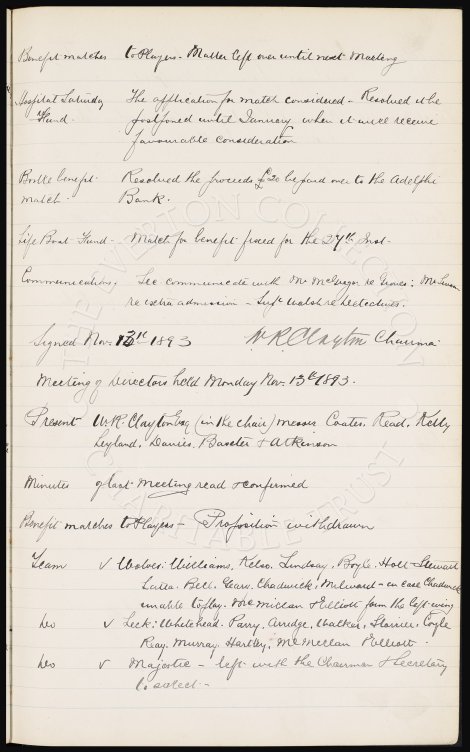 Benefit matches to Players - Matter left over until next Meeting
Hospital Saturday Fund The application for match considered - Resolved it be
postponed until January when it will receive
favourable consideration
Bootle benefit match. Resolved the proceeds £20 be paid over to the Adelphi
Bank.
Life Boat Fund - Match for benefit fixed for the 27th Inst
Communications. Sec communicate with Mr McGregor re Groves: Mr
re extra admission - Supt Walsh re Detectives.
Signed Nov. 1893 W.R. Clayton Chairma
Meeting of Directors held Monday Nov. 13th 1893.
Present W.R. Clayton Esq (in the chair) Messrs Coates, Read, Kelly
Leyland, Davies, Baxter & Atkinson
Minutes of last Meeting read & confirmed
Benefit matches to Players - Proposition withdrawn
Team v Wolves: Williams, Kelso, Lindsay, Boyle, Holt - Stewart
Latta. Bell. Geary. Chadwick, Milward - in case Chadwick
unable to play. McMillan & Elliott form the left wing
Do v Leek: Whitehead. Parry, Arridge, Walker, Storrier, Coyle
Reay. Murray. Hartley, McMillan & Elliott.
Do v Majestic - left with the Chairman & Secretary
to select -
THE EVERTON COLLECTION
CHARITABLE TRUST